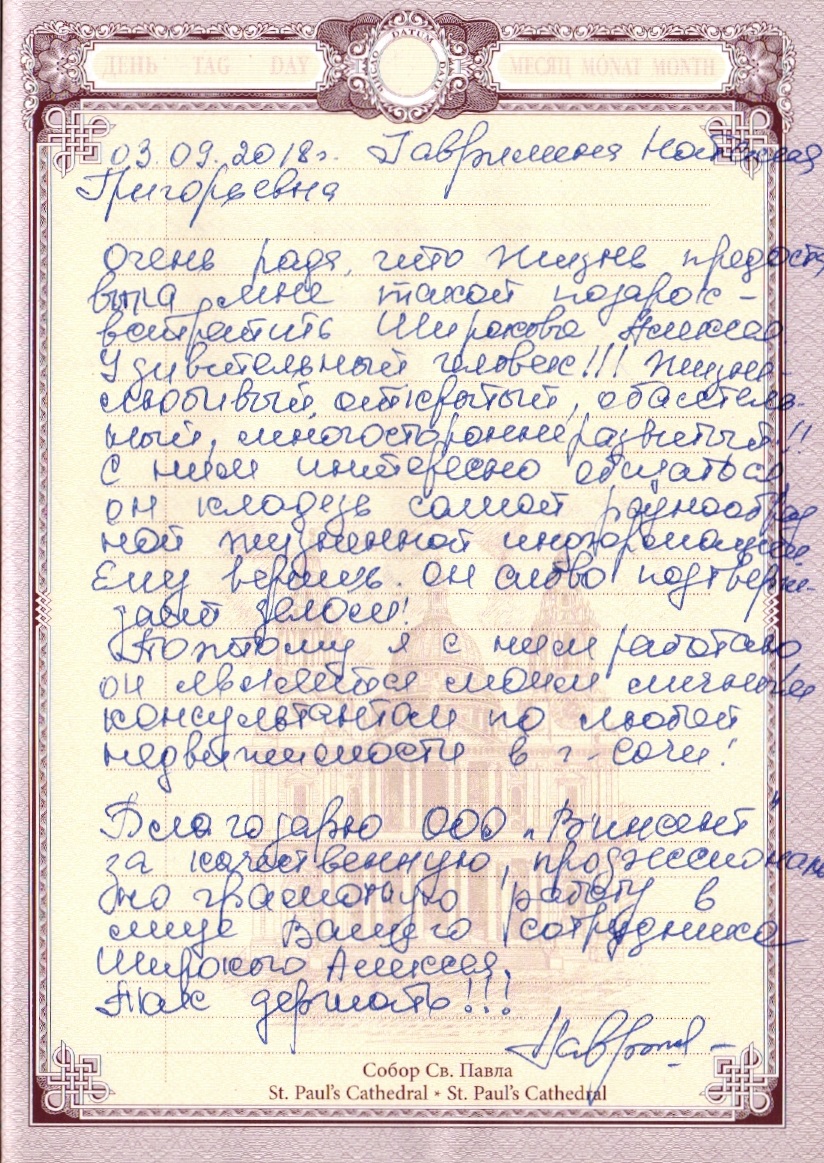 ДЕНЬ TAG DAY DATUM МЕСЯЦ MONAT MONTH
03.09.2018г. Гаврюшина Наталия
Григорьевна
Очень рада, что жизнь предоста
вила мне такой подарок -
встретить Широкова Алексея.
Удивительный человек!!! Жизне-
любивый, открытый, обаятель-
ный, многосторонне развитый!!
С ним интересно общаться,
он кладезь самой разнообраз
ной жизненной информации.
Ему веришь. Он слово подтверж-
дает делом!
Поэтому я с ним работаю
он является моим личным
консультантом по любой
недвижимости в г. Сочи!
Благодарю ООО "Винсент"
за качественную, профессиональ
но грамотную работу в
лице Вашего сотрудника
Широкого Алексея.
Так держать!!!
Собор Св. Павла
St. Paul's Cathedral * St. Paul's Cathedral